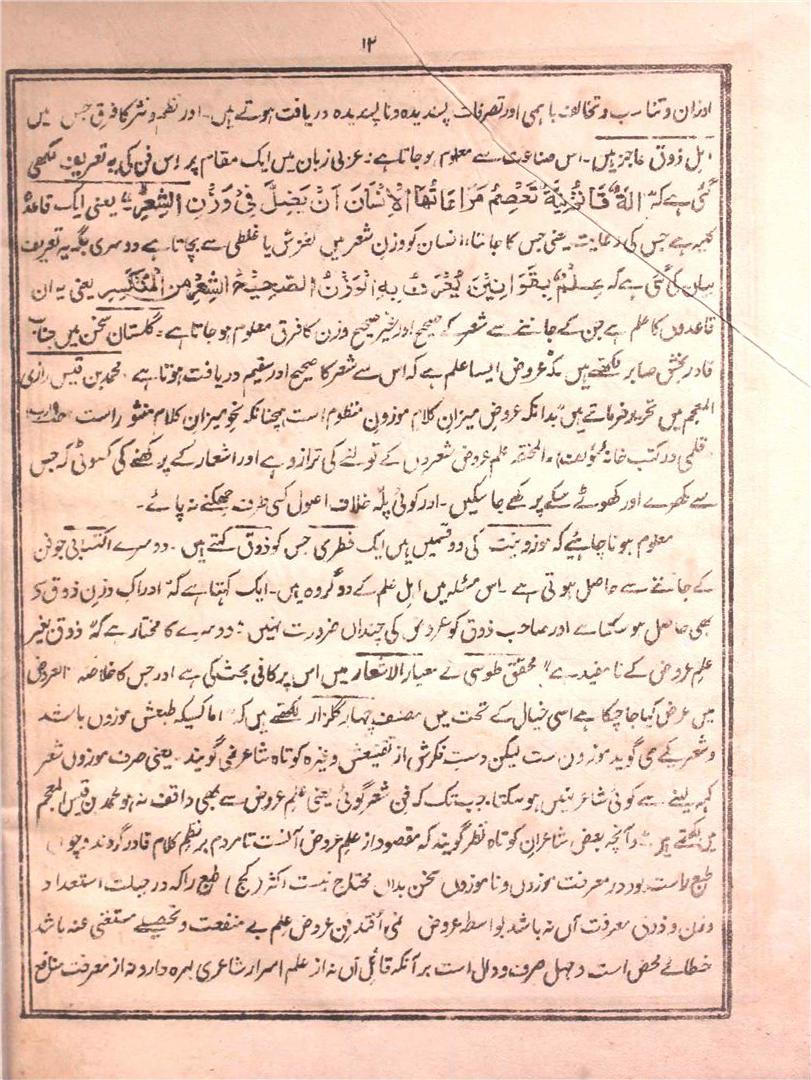 ۱۲
اوزان و تناسب و تخالف باہمی اور تصرفات پسندیدہ و ناپسندیدہ دریافت ہوتے ہیں۔ اور نظم و نثر کا فرق جس میں
اہل ذوق عاجز ہیں۔ اس صناعت سے معلوم ہو جاتا ہے۔ عربی زبان میں ایک مقام پر اس فن کی یہ تعریف لکھی
گئی ہے کہ اٰلَۃٌ قَانُوْنِیَّۃٌ تَعْصِمُ مَرَاعَاتُھَا الْاِنْسَانَ اَنْ یَضِلَّ فِیْ وَزْنِ الشِّعْرِ یعنی ایک قاعدہ
کلیہ ہے جس کی رعایت یعنی جس کا جاننا، انسان کو وزن شعر میں لغزش یا غلطی سے بچاتا ہے دوسری جگہ یہ تعریف
بیان کی گئی ہے کہ عِلْمٌ بِقَوَانِیْنَ یُعْرَفُ بِہِ الْوَزْنُ الصَّحِیْحُ الشِّعْرِ مِنَ الْمُنْکَسِرِ یعنی یہ ان
قاعدوں کا علم ہے جن کے جاننے سے شعر کے صحیح اور غیر صحیح وزن کا فرق معلوم ہو جاتا ہے۔ گلستان سخن میں جناب
قادر بخش صابر لکھتے ہیں کہ عروض ایسا علم ہے کہ اس سے شعر کا صحیح اور سقیم دریافت ہوتا ہے۔ محمد بن قیس رازی
المعجم میں تحریر فرماتے ہیں "بدانکہ عروض میزان کلام موزون منظوم است ہمچنانکہ نحو میزان کلام منثور است
قلمی در کتب خانہ مؤلف) المختصر علم عروض شعروں کے تولنے کی ترازو ہے اور اشعار کے پرکھنے کی کسوٹی کہ جس
سے کھرے اور کھوٹے سکے پرکھے جا سکیں۔ اور کوئی پلہ خلاف اصول کسی طرف جھکنے نہ پائے۔
معلوم ہونا چاہئیے کہ موزونیت کی دو قسمیں ہیں ایک فطری جس کو ذوق کہتے ہیں۔ دوسرے اکتسابی جو فن
کے جاننے سے حاصل ہوتی ہے۔ اس مسئلہ میں اہل علم کے دو گروہ ہیں۔ ایک کہتا ہے کہ "ادراک وزن ذوق سے
بھی حاصل ہو سکتا ہے اور صاحب ذوق کو عروض کی چنداں ضرورت نہیں" دوسرے کا مختار ہے کہ "ذوق بغیر
علم عروض کے نا مفید ہے" محقق طوسی نے معیار الاشعار میں اس پر کافی بحث کی ہے اور جس کا خلاصہ العروض
میں عرض کیا جا چکا ہے اسی خیال کے تحت میں مصنف چہار گلزار لکھتے ہیں کہ "اما کسیکہ طبعش موزوں باشد
و شعر کے می گوید موزون ست لیکن دست فکرش از تقطیعش وغیرہ کوتاہ شاعر نمی گویند۔ یعنی صرف موزوں شعر
کہہ لینے سے کوئی شاعر نہیں ہو سکتا۔ جب تک کہ فن شعر گوئی یعنی علم عروض سے بھی واقف نہ ہو محمد بن قیس المعجم
میں لکھتے ہیں و آنچہ بعض شاعران کوتاہ نظر گویند کہ مقصود از علم عروض آنست تا مردم بر نظم کلام قادر گردند و چوں
طبع راست بود در معرفت موزوں و ناموزوں سخن بداں محتاج نیست اکثر (کج) طبع را کہ در جبلت استعداد
وزن و ذوق معرفت آں نہ باشد بواسطہ عروض نمی افتد پس عروض علم بے منفعت و تحصیلے مستغنی عنہ باشد
خطائے محض است و جہل صرف و دال است بر آنکہ قائل آں نہ از علم اسرار شاعری بہرہ دارد و نہ از معرفت منافع